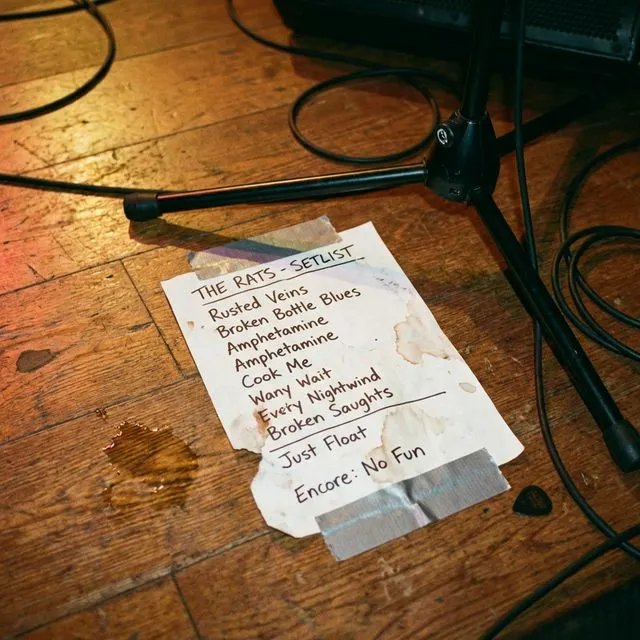 THE RATS - SETLIST
Rusted Veins
Broken Bottle Blues
Amphetamine
Amphetamine
Cook Me
Wany Wait
Every Nightwind
Broken Saughts
Just Float
Encore: No Fun